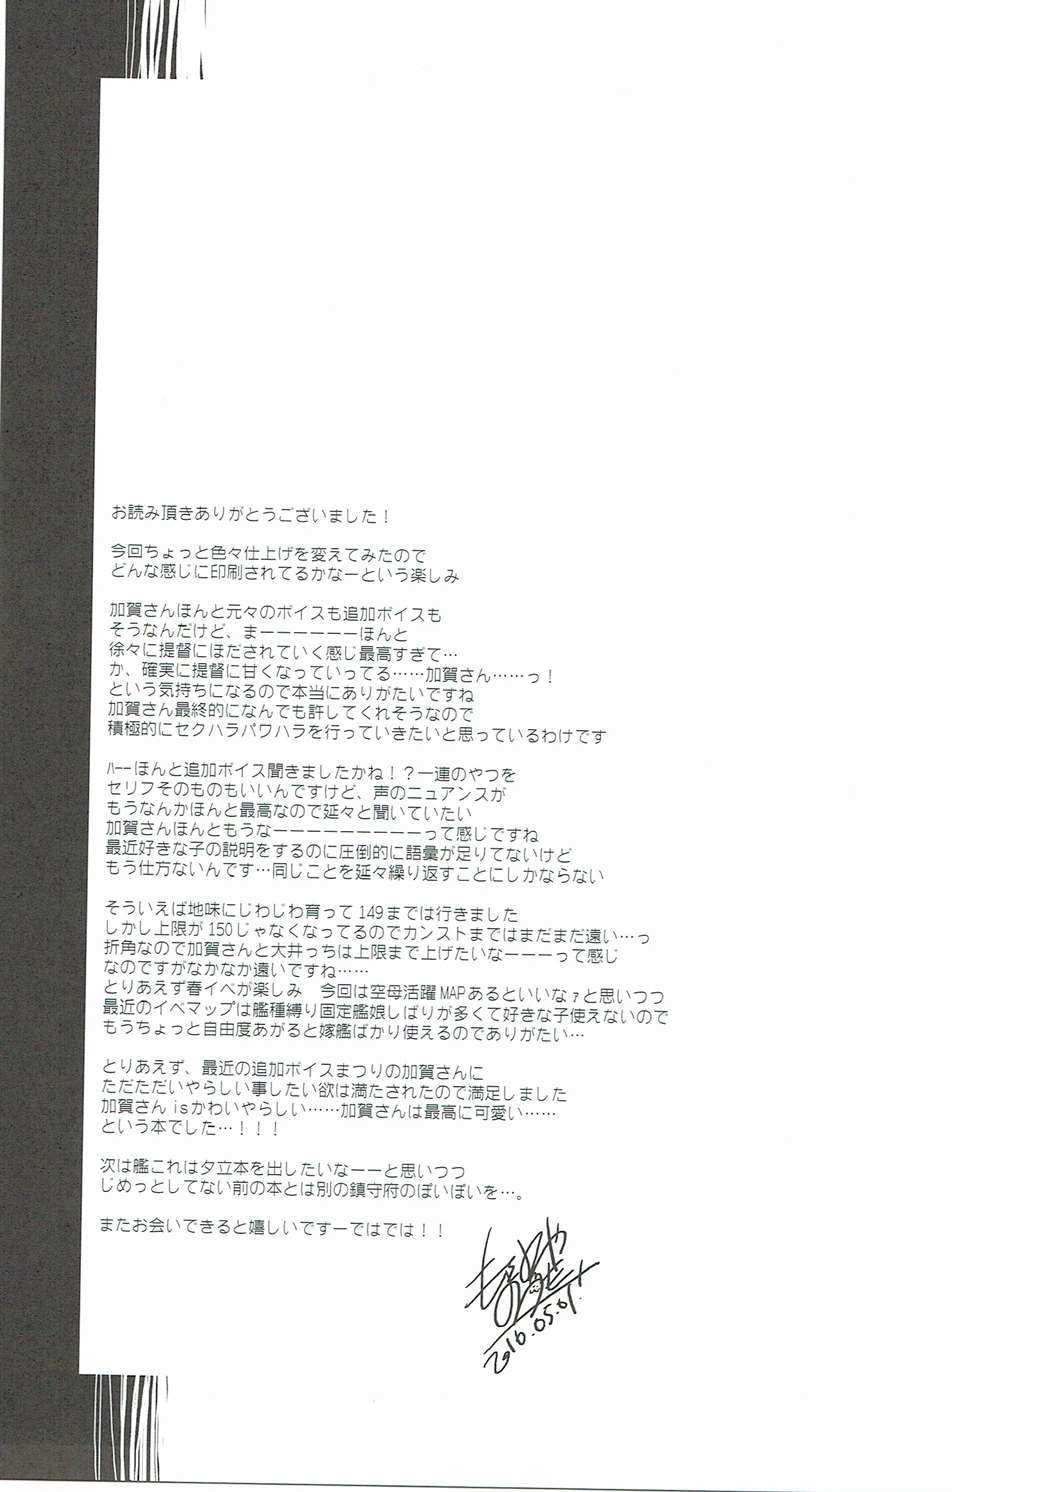 お読み頂きありがとうございました！
今回ちょっと色々仕上げを変えてみたので
どんな感じに印刷されてるかなーという楽しみ
加賀さんほんと元々のボイスも追加ボイスも
そうなんだけど、まーーーーーーーほんと
徐々に提督にほだされていく感じ最高すぎて…
か、確実に提督に甘くなっていってる……加賀さん……っ！
という気持ちになるので本当にありがたいですね
加賀さん最終的になんでも許してくれそうなので
積極的にセクハラパワハラを行っていきたいと思っているわけです
ﾊーーほんと追加ボイス聞きましたかね！？一連のやつを
セリフそのものもいいんですけど、声のニュアンスが
もうなんかほんと最高なので延々と聞いていたい
加賀さんほんともうなーーーーーーーーーって感じですね
最近好きな子の説明をするのに圧倒的に語彙が足りてないけど
もう仕方ないんです…同じことを延々繰り返すことにしかならない
そういえば地味にじわじわ育って149までは行きました
しかし上限が150じゃなくなってるのでカンストまではまだまだ遠い…っ
折角なので加賀さんと大井っちは上限まで上げたいなーーーって感じ
なのですがなかなか遠いですね……
とりあえず春イベが楽しみ　今回は空母活躍MAPあるといいなｧと思いつつ
最近のイベマップは艦種縛り固定艦娘しばりが多くて好きな子使えないので
もうちょっと自由度あがると嫁艦ばかり使えるのでありがたい…
とりあえず、最近の追加ボイスまつりの加賀さんに
ただただいやらしい事したい欲は満たされたので満足しました
加賀さんisかわいやらしい……加賀さんは最高に可愛い……
という本でした…！！！
次は艦これは夕立本を出したいなーーと思いつつ
じめっとしてない前の本とは別の鎮守府のぽいぽいを…。
またお会いできると嬉しいですーではでは！！
2016.05.01.